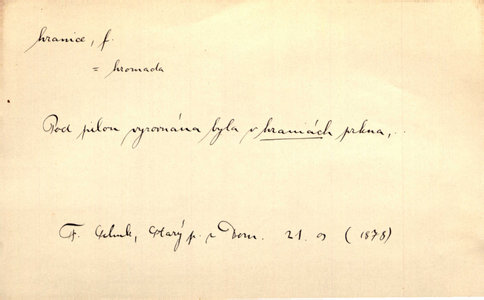 hranice, f.
= hromada
Pod pilou vyrovnána byla v hranicích prkna,..
Starý p. z Dom. 21. (1878)